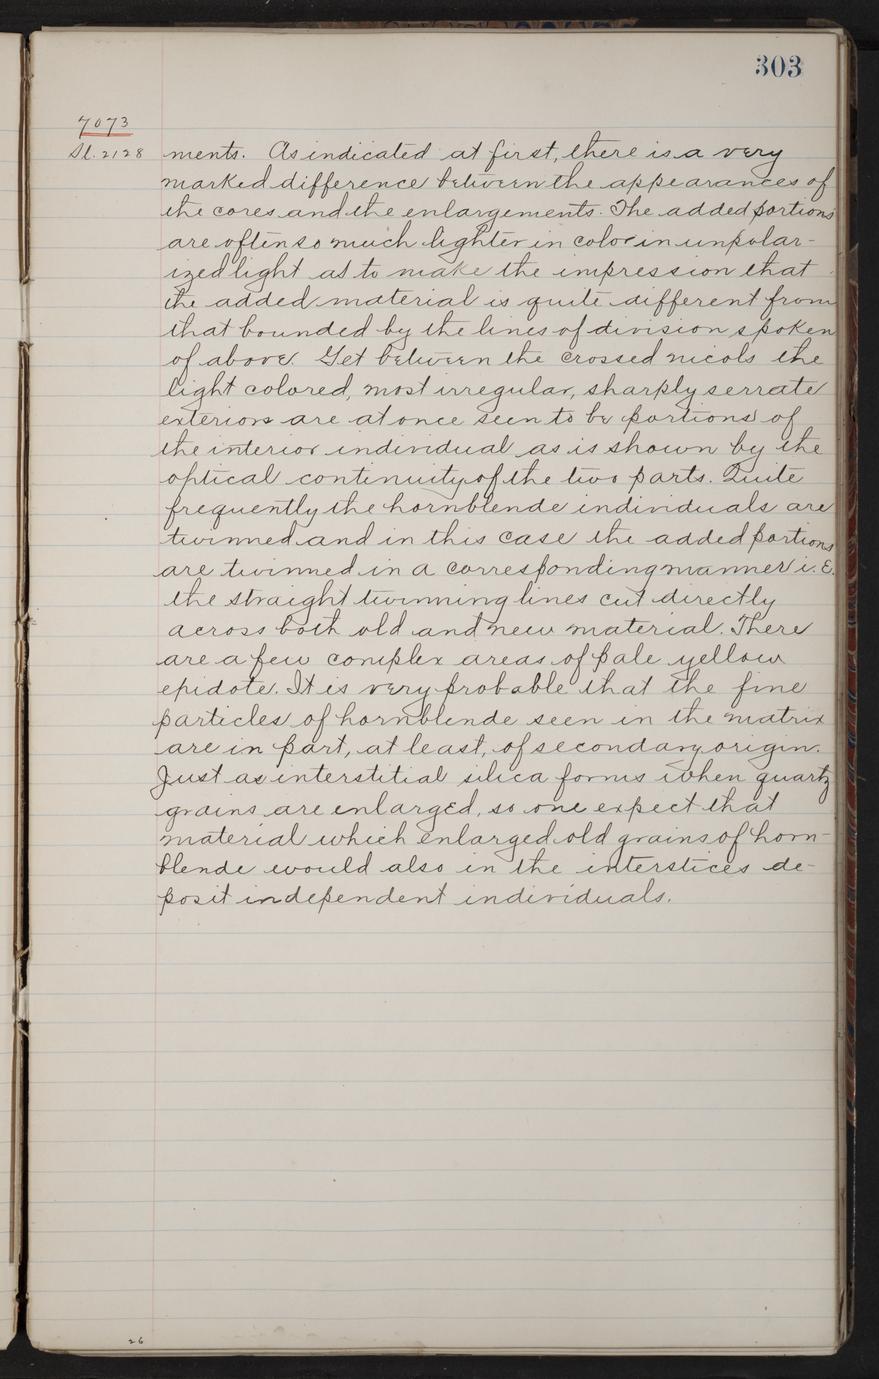 303
7073
Sl. 2128 ments. As indicated at first, there is a very
marked difference between the appearances of
the cores and the enlargements. The added portions
are often so much lighter in color in unpolar-
ized light as to make the impression that
the added material is quite different from
that bounded by the lines of division spoken
of above. Yet between the crossed nicols the
light colored, most irregular, sharply serrate
exteriors are at once seen to be portions of
the interior individual as is shown by the
optical continuity of the two parts. Quite
frequently the hornblende individuals are
twinned and in this case the added portions
are twinned in a corresponding manner i. e.
the straight twinning lines cut directly
across both old and new material. There
are a few complex areas of pale yellow
epidote. It is very probable that the fine
particles of hornblende seen in the matrix
are in part, at least, of secondary origin.
Just as interstitial silica forms when quartz
grains are enlarged, so one expect that
material which enlarged old grains of horn-
blende would also in the interstices de-
posit independent individuals.
26